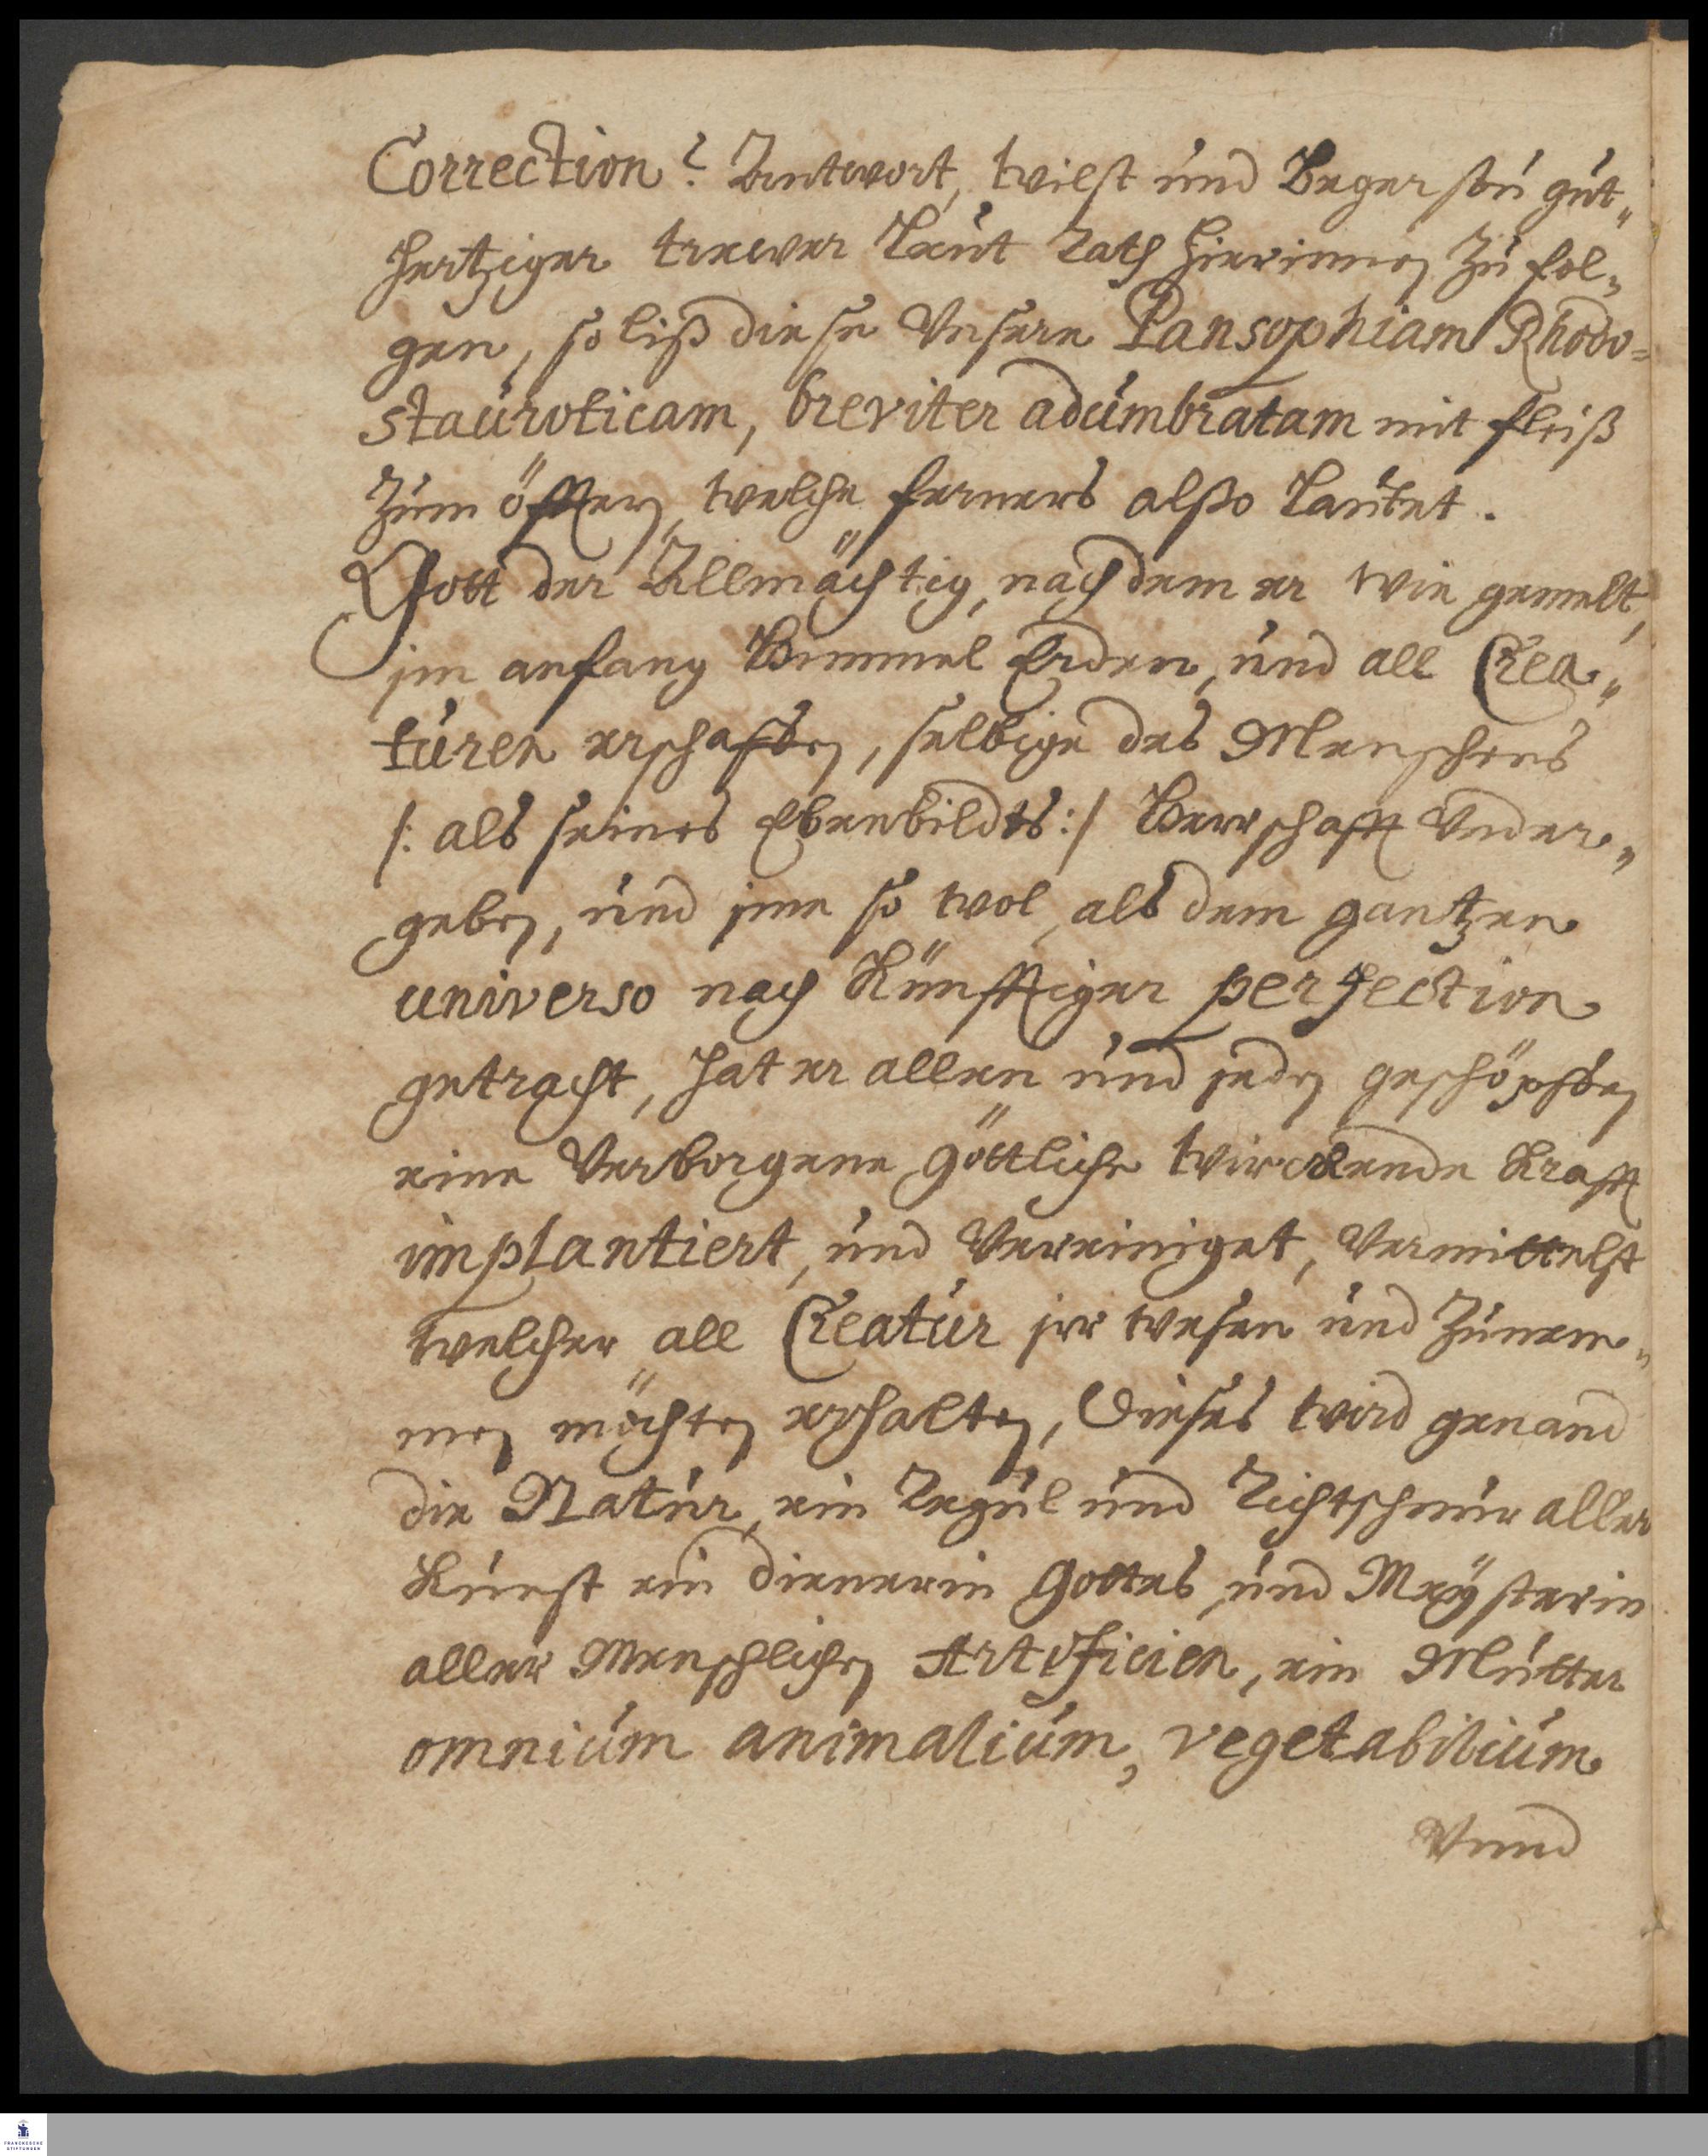 Correction? Antwort, wilst und Begerstu gut„
hertziger trewer Leut Rath hierinnen zu fol„
gen, so liß diese Unsere Pansophiam Rhodo=
stauroticam, breviter adumbratam mit fleiß
zum öfftern, welche ferners alßo Lautet.
Gott der Allmächtig, nach dem er wie gemelt,
im anfang Himmel Erden, und all Crea„
turen erschaffen, selbige des Menschens
/: als seines Ebenbildts :/ Herrschafft Under„
geben, und jme so wol, als dem gantzen
universo nach Künfftiger perfection
getracht, hat er allen und jeden geschöpffen
eine Verborgene göttliche wirckende Krafft
implantiert, und Vereiniget, Vermittelst
welcher all Creatur jrr wesen und zunem„
men möchten erhalten, Dieses wird genand
die Natur, ein Regul und Richtschnur aller
Kunst ein dienerin Gottes, und Meÿsterin
aller Menschlichen Artificien, ein Mutter
omnium animalium, vegetabilium
Vnnd
FRANCKESCHE
STIFTUNGEN